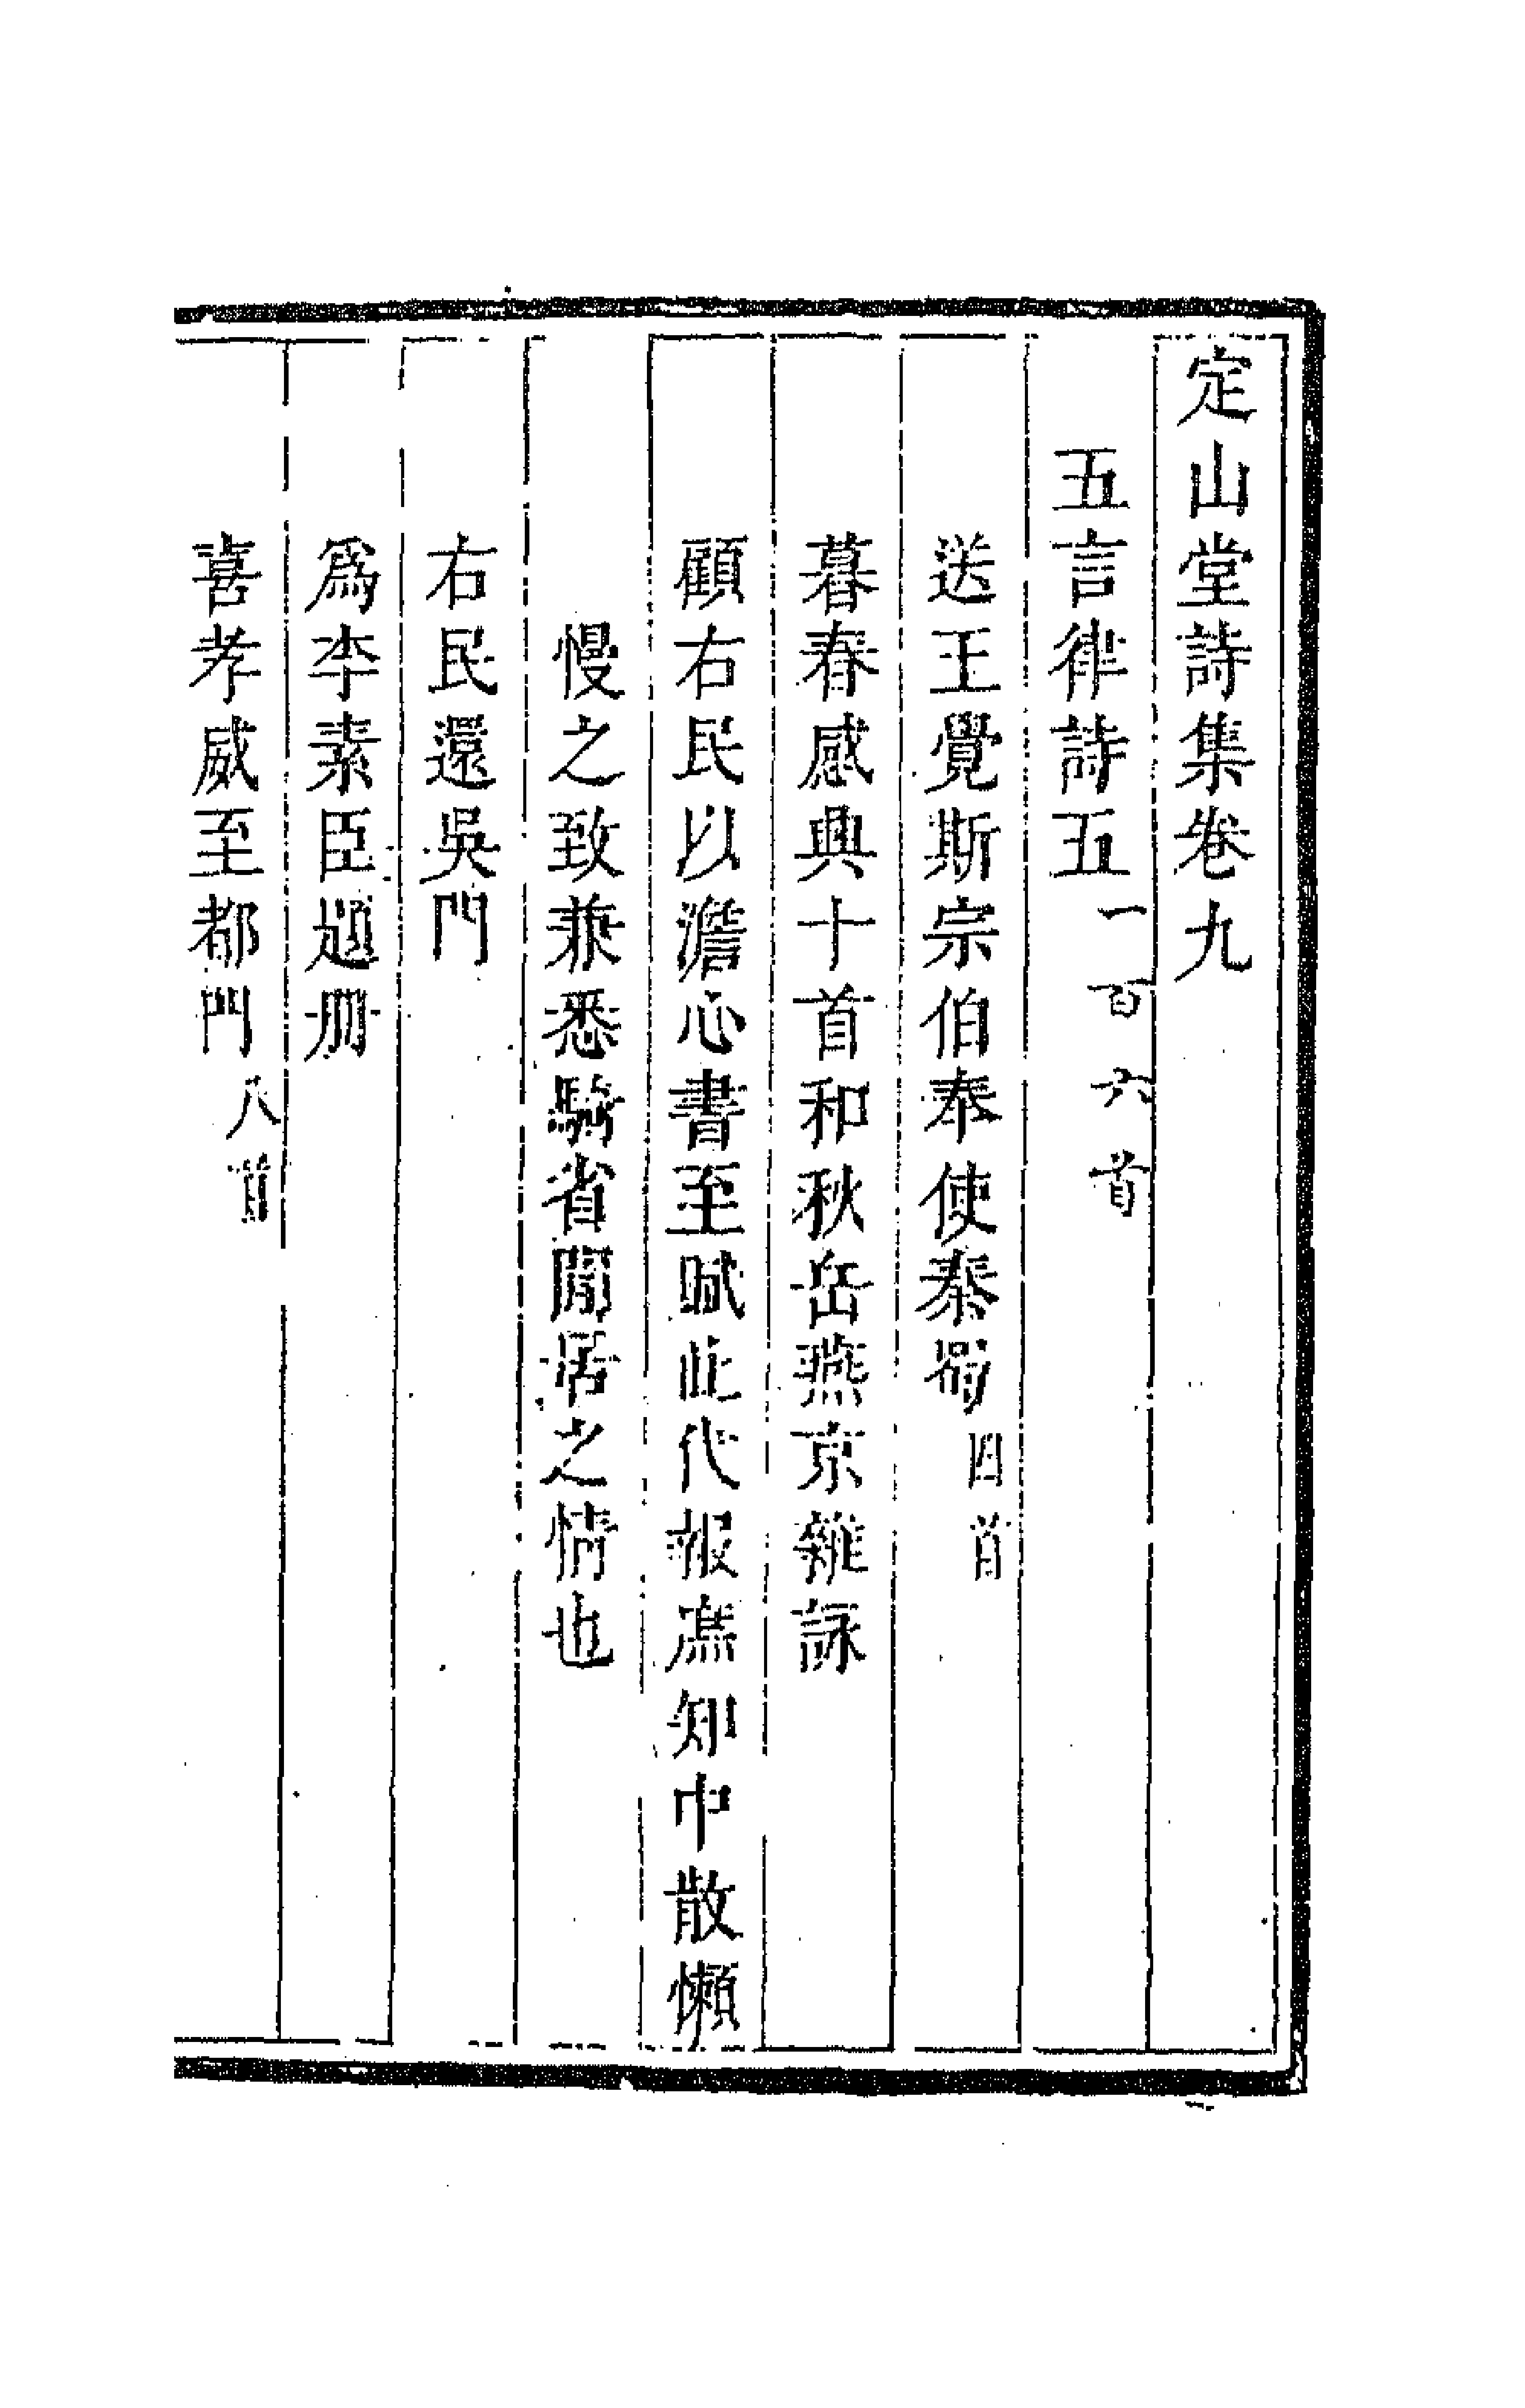 定山堂詩集卷九
五言律詩五一百六首
送王覺斯宗伯奉使秦蜀四首
暮春感興十首和秋岳燕京雜詠
顧右民以澹心書至賦此代報庶知中散懶
慢之致兼悉騎省閒居之情也
右民還吳門
爲李素臣題册
喜孝威至都門八首